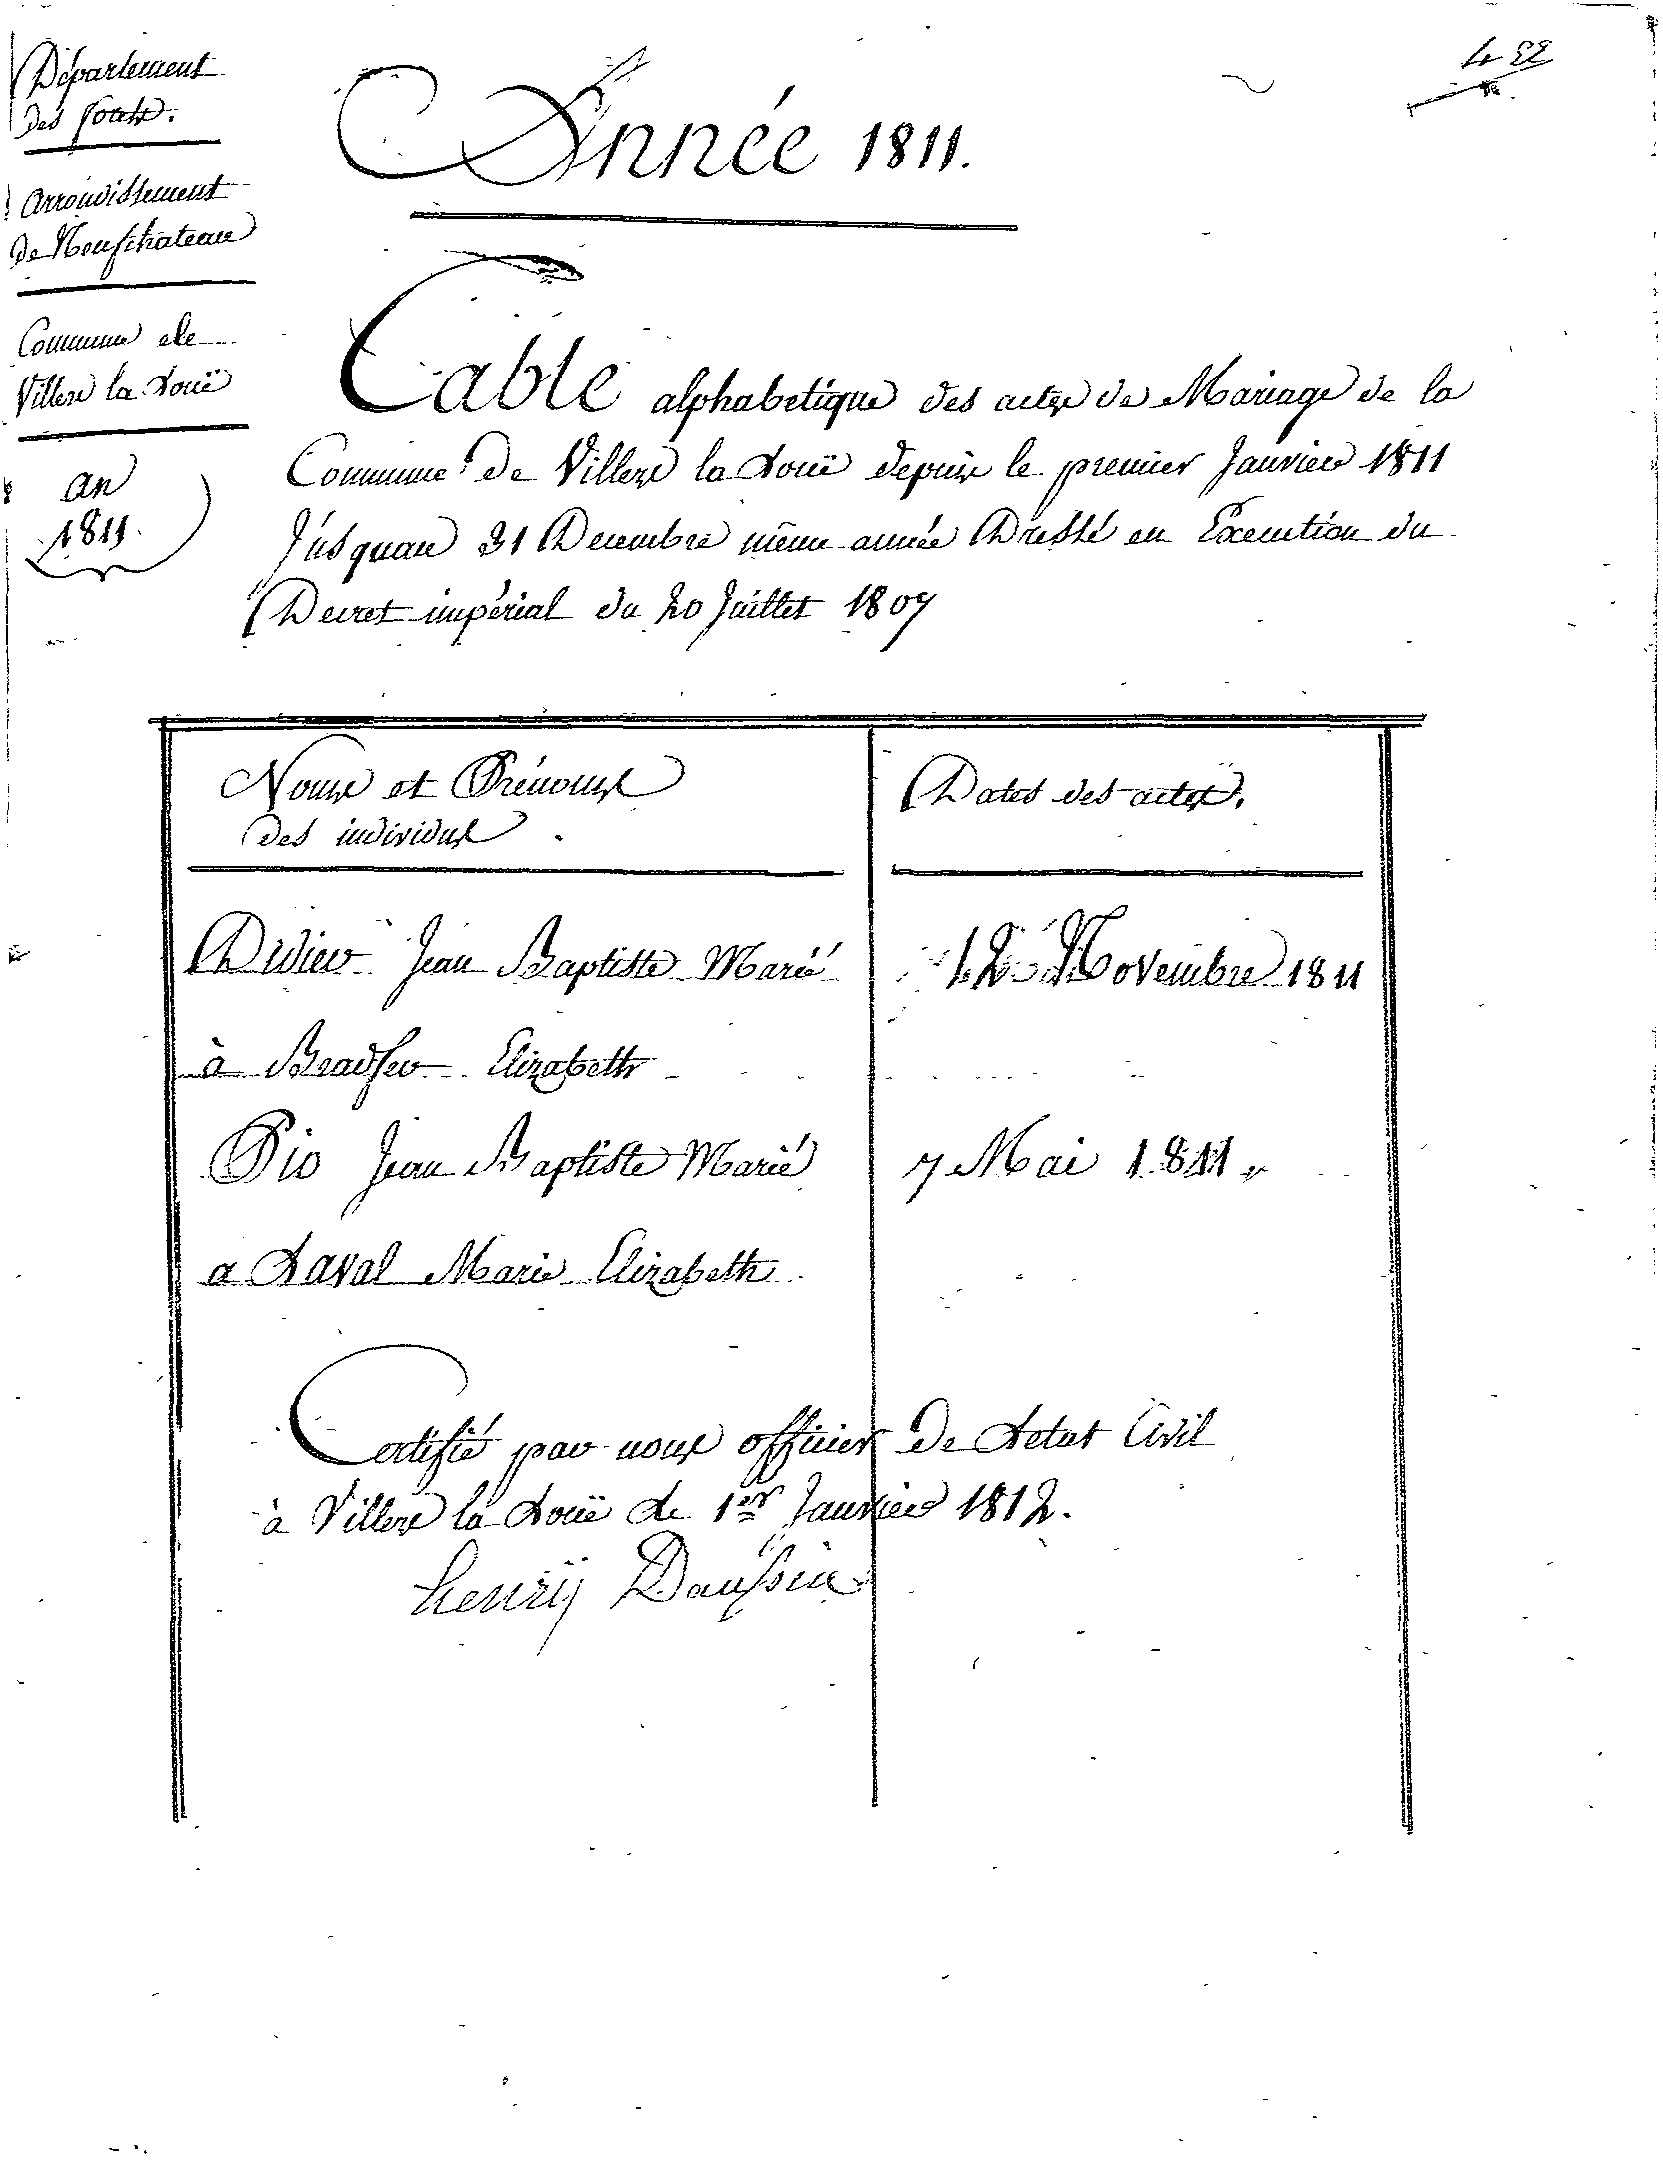 Département
des forets.
arrondissement
de Neufchateau
Commune de
Villers la Loüe
an
1811.
Année 1811.
Table alphabetique des actes de Mariage de la
Commune de Villers la Loüe depuis le premier Janvier 1811
Jusquau 31 Decembre même année Dressé en Execution du
Decret impérial du 20 Juillet 1807
Noms et Prénoms
des individus
Dates des actes.
Didier Jean Baptiste Marié
12 Novembre 1811
à Elizabeth
Pio Jean Baptiste Marié
7 Mai 1811
a Laval Marie Elizabeth
Certifié par nous officier de Letat Civil
à Villers la Loüe Le 1er Janvier 1812.
henrÿ Daussin